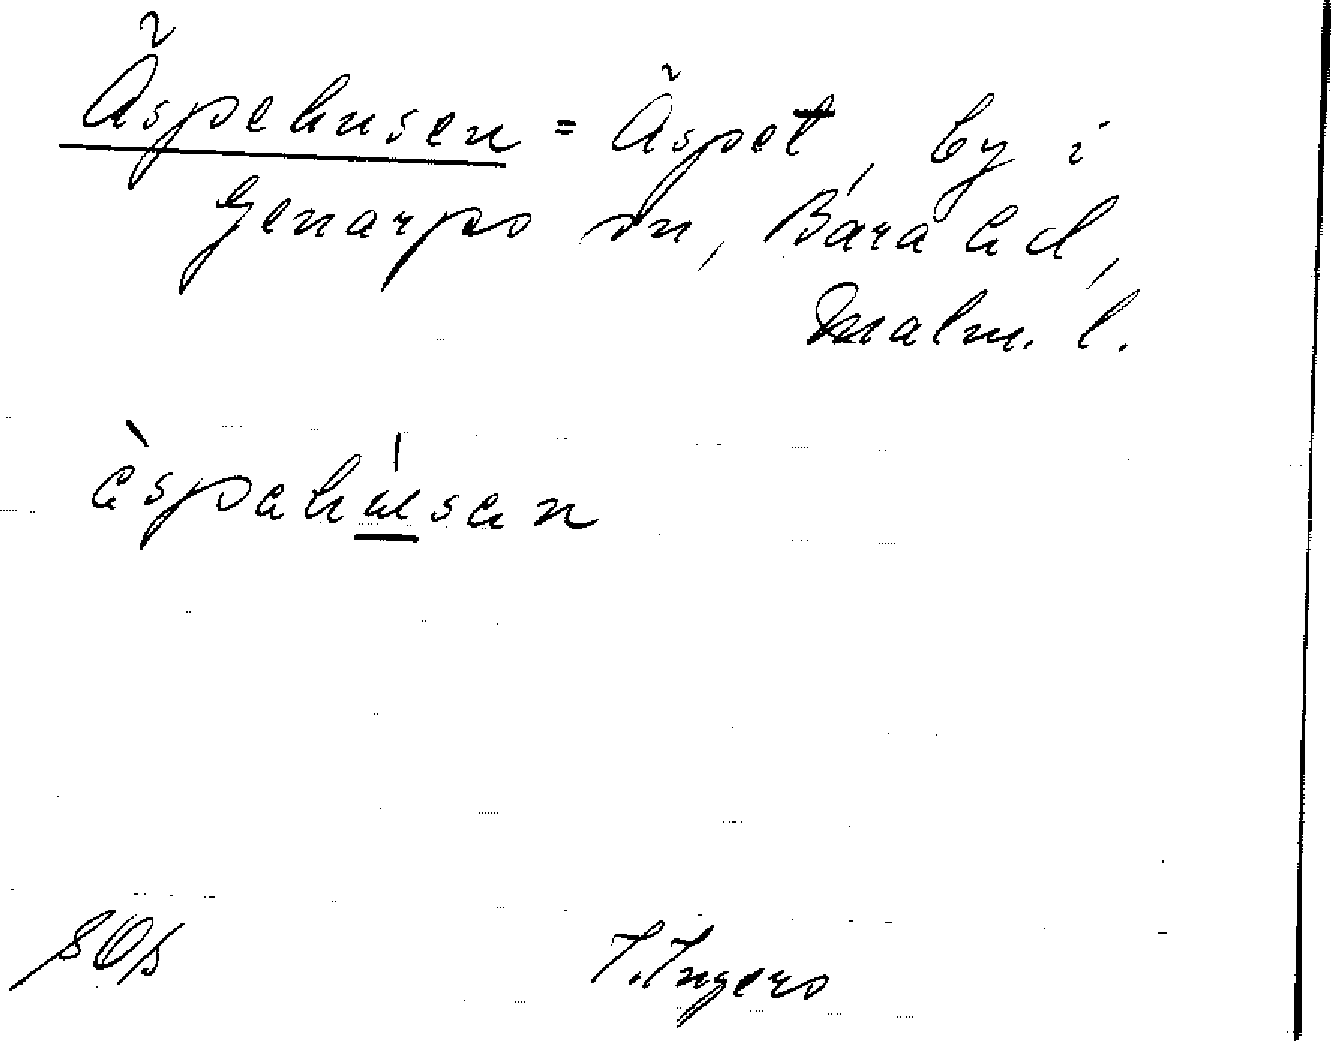 Äspehusen = Äspet, by i
Genarps sn, Bara hd,
Malm. l.
èspahúsan
SOS I. Ingers